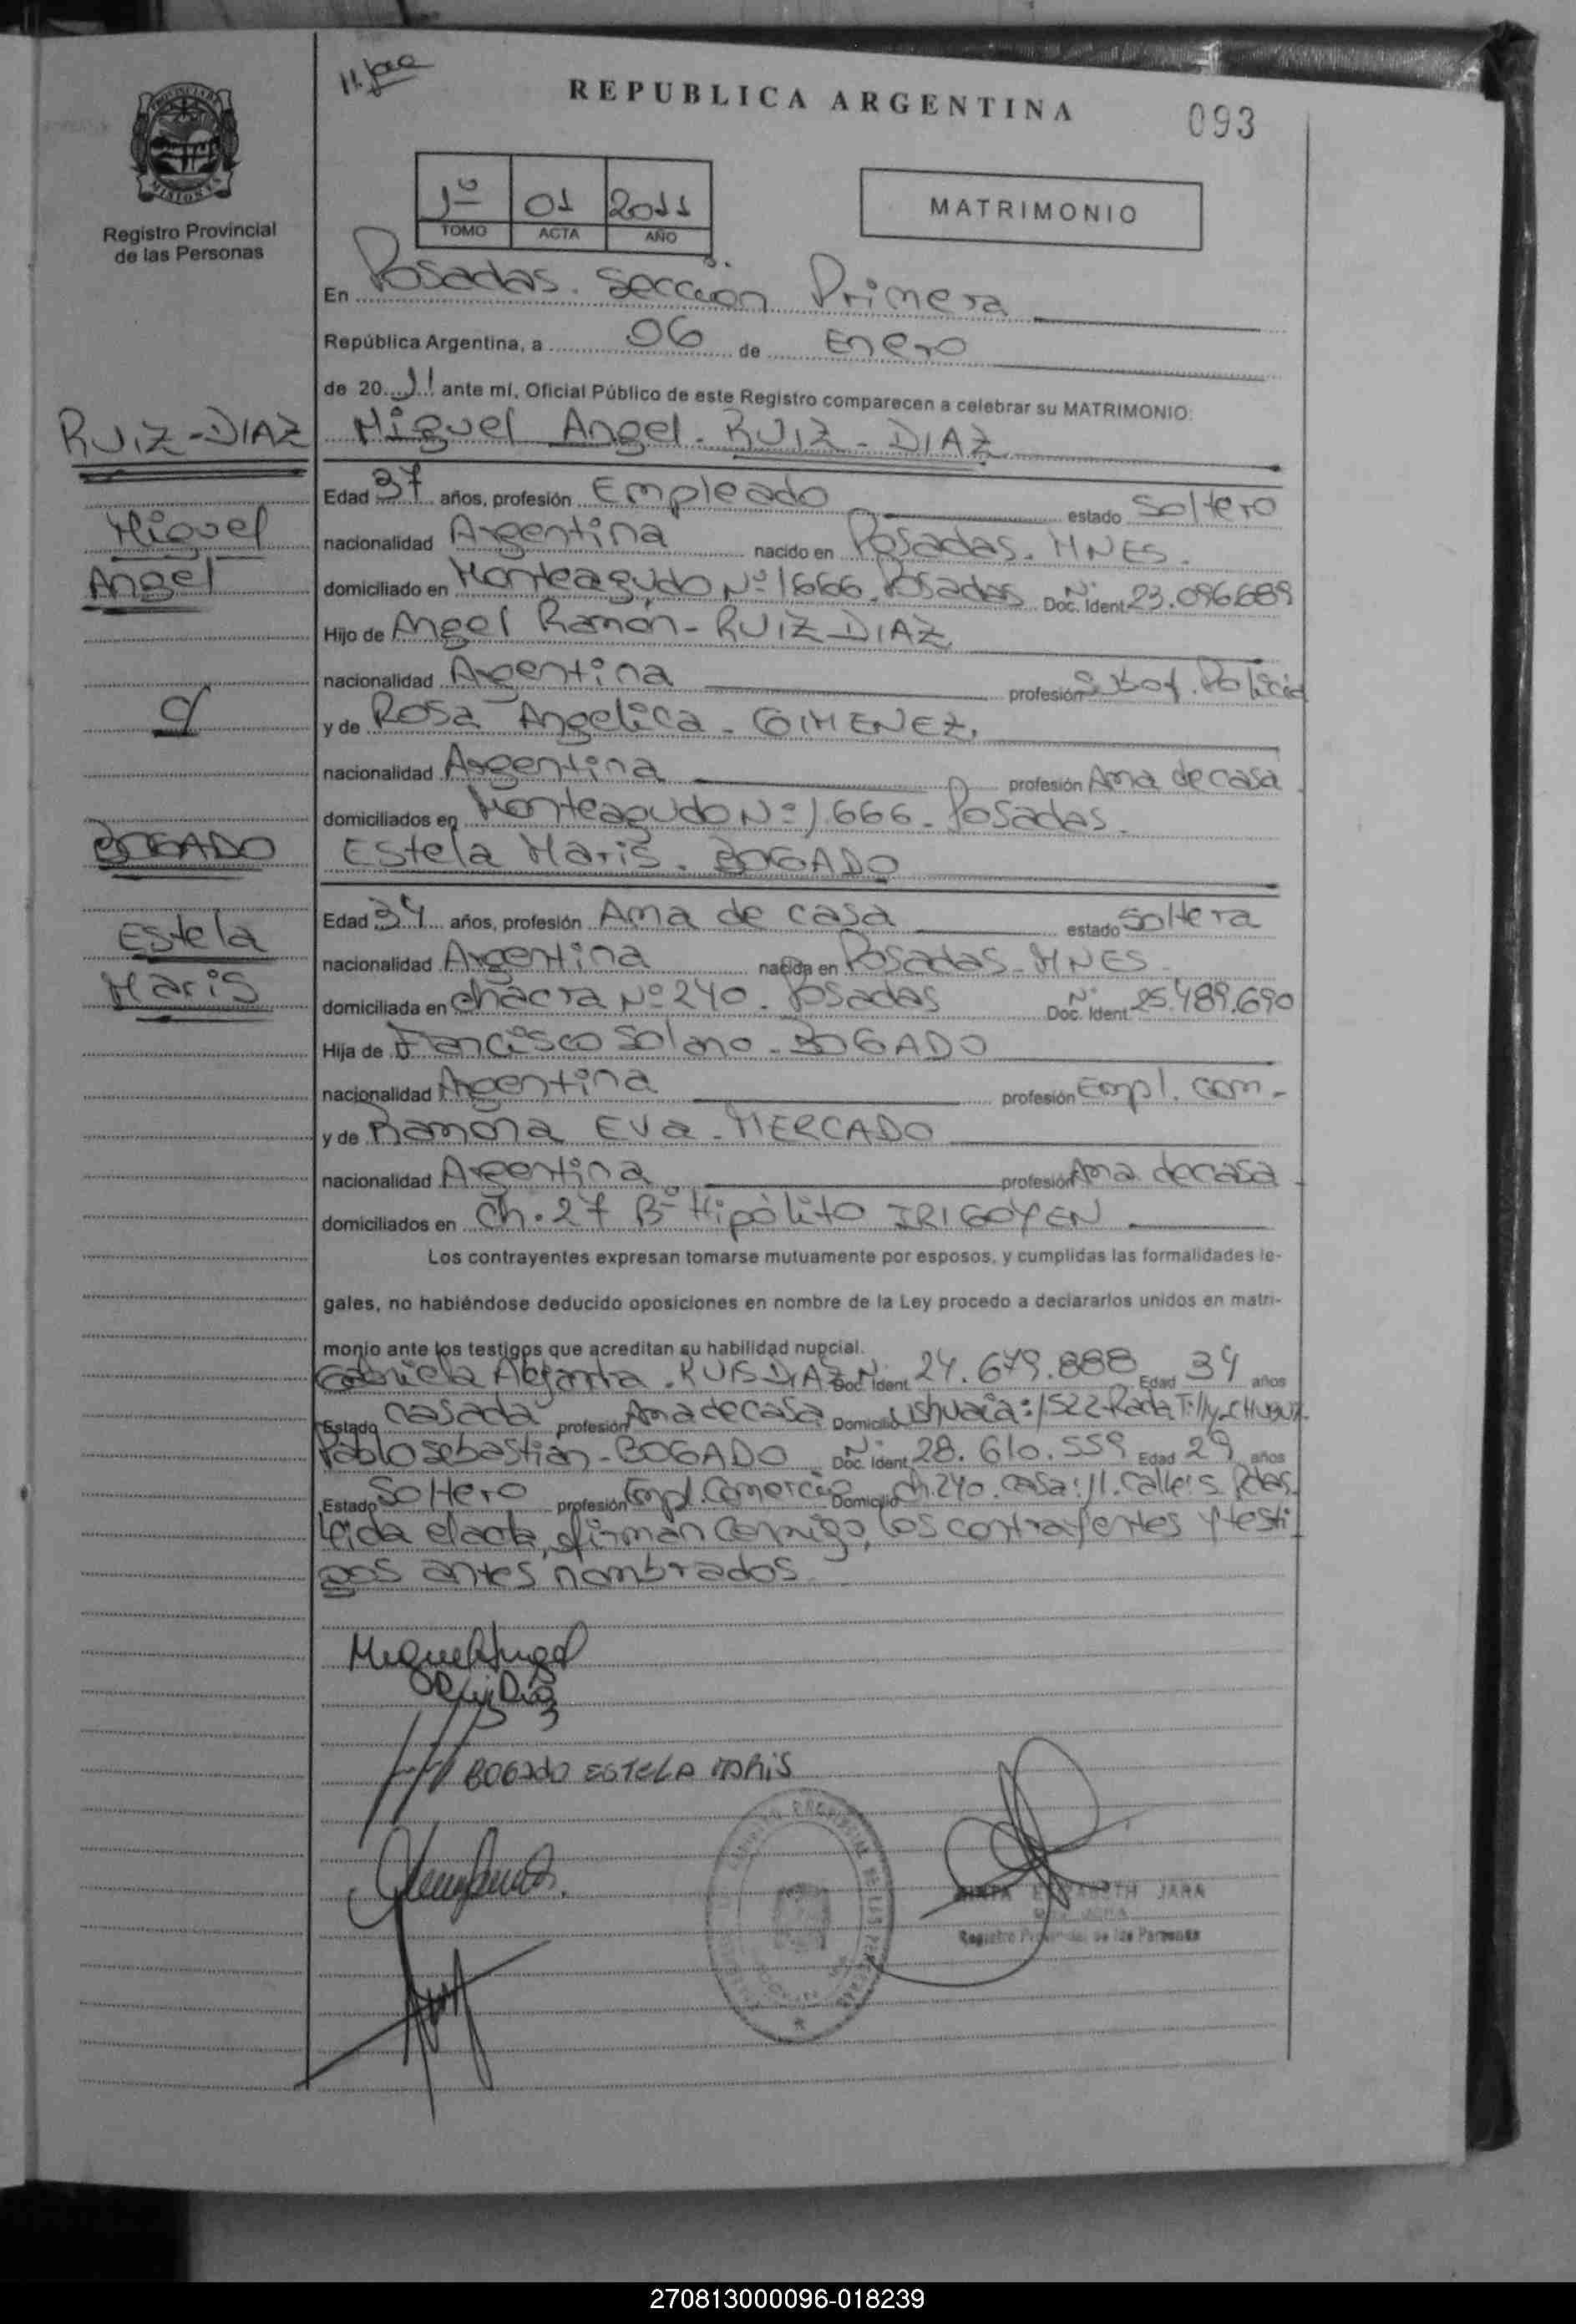 REPUBLICA ARGENTINA
093
PROVINCIA DE
MISIONES
Registro Provincial
de las Personas
1º 01 2011
TOMO ACTA AÑO
MATRIMONIO
En Posadas. Sección Primera
República Argentina, a 06 de Enero
de 20 11 ante mí, Oficial Público de este Registro comparecen a celebrar su MATRIMONIO:
RUIZ-DIAZ Miguel Angel. RUIZ-DIAZ
Edad 37 años, profesión Empleado estado Soltero
Miguel nacionalidad Argentina nacido en Posadas. MNES.
Angel domiciliado en Monteagudo Nº 1666. Posadas Nº Doc. Ident. 23.096.689
Hijo de Angel Ramón-RUIZ DIAZ
nacionalidad Argentina profesión Subof. Policia
y de Rosa Angelica - GIMENEZ.
c/
nacionalidad Argentina profesión Ama de casa
domiciliados en Monteagudo Nº 1.666. Posadas.
BOGADO Estela Maris. BOGADO
Edad 34 años, profesión Ama de casa estado Soltera
Estela nacionalidad Argentina nacida en Posadas-MNES
Maris domiciliada en chacra Nº 240. Posadas Nº Doc. Ident. 25.489.690
Hija de Francisco Solano-BOGADO
nacionalidad Argentina profesión Empl. com.
y de Ramona Eva-MERCADO
nacionalidad Argentina profesión Ama de casa
domiciliados en Ch. 27 Bº Hipólito IRIGOYEN
Los contrayentes expresan tomarse mutuamente por esposos, y cumplidas las formalidades le-
gales, no habiéndose deducido oposiciones en nombre de la Ley procedo a declararlos unidos en matri-
monio ante los testigos que acreditan su habilidad nupcial.
Gabriela Alejandra. RUIS DIAZ Nº Doc. Ident. 24.679.888 Edad 34 años
Estado casada profesión Ama de casa Domicilio Ushuaia: 1522-Rada Tilly-CHUBUT.
Pablo Sebastian-BOGADO Nº Doc. Ident. 28.610.559 Edad 29 años
Estado Soltero profesión Empl. Comercio Domicilio Ch. 240. casa: 11. calle: S. Pdas.
Leida el acta, firman conmigo, los contrayentes y testi
gos antes nombrados
Miguel Angel
Ruiz Diaz
BOGADO ESTELA MARIS
ELIZABETH JARA
Registro Provincial de las Personas
270813000096-018239